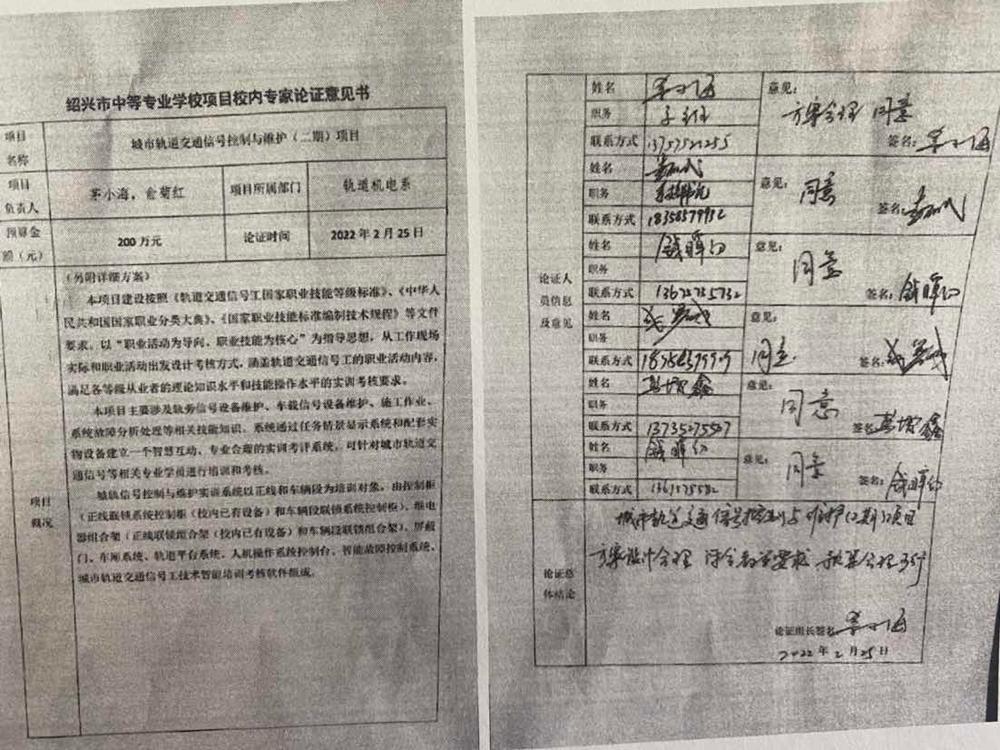 绍兴市中等专业学校项目校内专家论证意见书
项目名称
城市轨道交通信号控制与维护（二期）项目
项目负责人
茅小海，俞菊红
项目所属部门
轨道机电系
预算金额（元）
200万元
论证时间
2022年2月25日
项目概况
（另附详细方案）
本项目建设按照《轨道交通信号工国家职业技能等级标准》、《中华人
民共和国国家职业分类大典》、《国家职业技能标准编制技术规程》等文件
要求，以“职业活动为导向、职业技能为核心”为指导思想，从工作现场
实际和职业活动出发设计考核方式，涵盖轨道交通信号工的职业活动内容，
满足各等级从业者的理论知识水平和技能操作水平的实训考核要求。
本项目主要涉及轨旁信号设备维护、车载信号设备维护、施工作业、
系统故障分析处理等相关技能知识。系统通过任务情景显示系统和配套实
物设备建立一个智慧互动、专业合理的实训考评系统。可针对城市轨道交
通信号等相关专业学员进行培训和考核。
城轨信号控制与维护实训系统以正线和车辆段为培训对象，由控制柜
（正线联锁系统控制柜（校内已有设备）和车辆段联锁系统控制柜）、继电
器组合架（正线联锁组合架（校内已有设备）和车辆段联锁组合架）、屏蔽
门、车厢系统、轨道平台系统、人机操作系统控制台、智能故障控制系统、
城市轨道交通信号工技术智能培训考核软件组成。
论证人员信息及意见
姓名 茅小海
职务
联系方式
意见：
方案合理 同意
签名：茅小海
姓名
职务
联系方式
意见：
同意
签名：
姓名 钱晖
职务
联系方式
意见：
同意
签名：钱晖
姓名
职务
联系方式
意见：
同意
签名：
姓名 增鑫
职务
联系方式 13735275507
意见：
同意
签名： 增鑫
姓名 钱晖
职务
联系方式
意见：
同意
签名：钱晖
论证总体结论
城市轨道交通信号控制与维护（二期）项目
方案设计合理 符合教学要求 预算合理可行
论证组长签名：茅小海
2022年2月25日